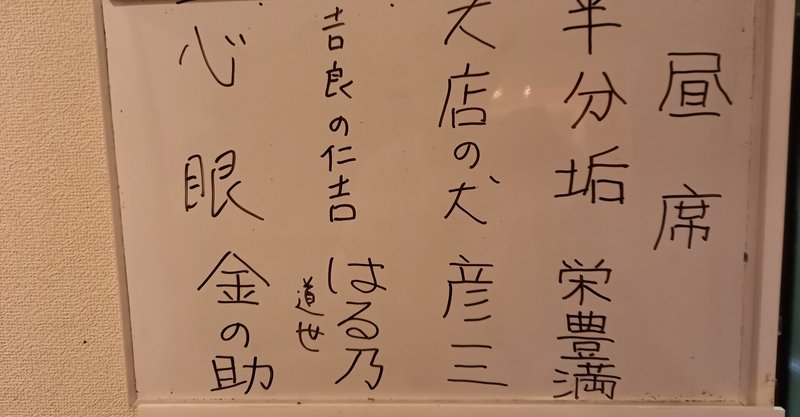 昼席
半分垢 栄豊満
大店の犬 彦三
吉良の仁吉 はる乃
道世
心眼 金の助